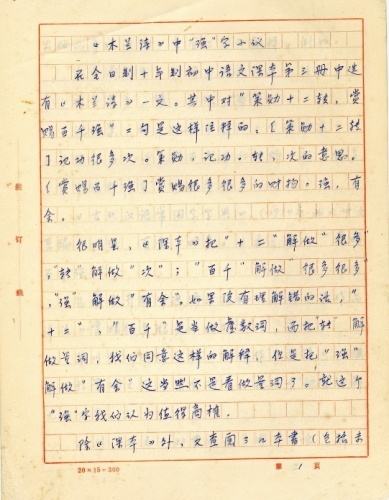 《木兰诗》中“强”字小议
在全日制十年制初中语文课本第三册中选
有《木兰诗》一文。其中对“策勋十二转，赏
赐百千强”二句是这样注释的，〔策勋十二转
〕记功很多次。策勋，记功。转，次的意思。
〔赏赐百千强〕赏赐很多很多的财物。强，有
余。
很明显，《课本》把“十二”解做“很多
，“转”解做“次”；“百千”解做“很多很多
，“强”解做“有余”。如果没有理解错的话，“
十二”、“百千”是当做虚数词，而把“转”解
做量词，我们同意这样的解释，但是把“强”
解做“有余”这当然不是看做量词了。就这个
“强”字我们认为值得商榷。
除《课本》外，又查阅了几本书（包括未
装订线
20×15=300
第 1 页